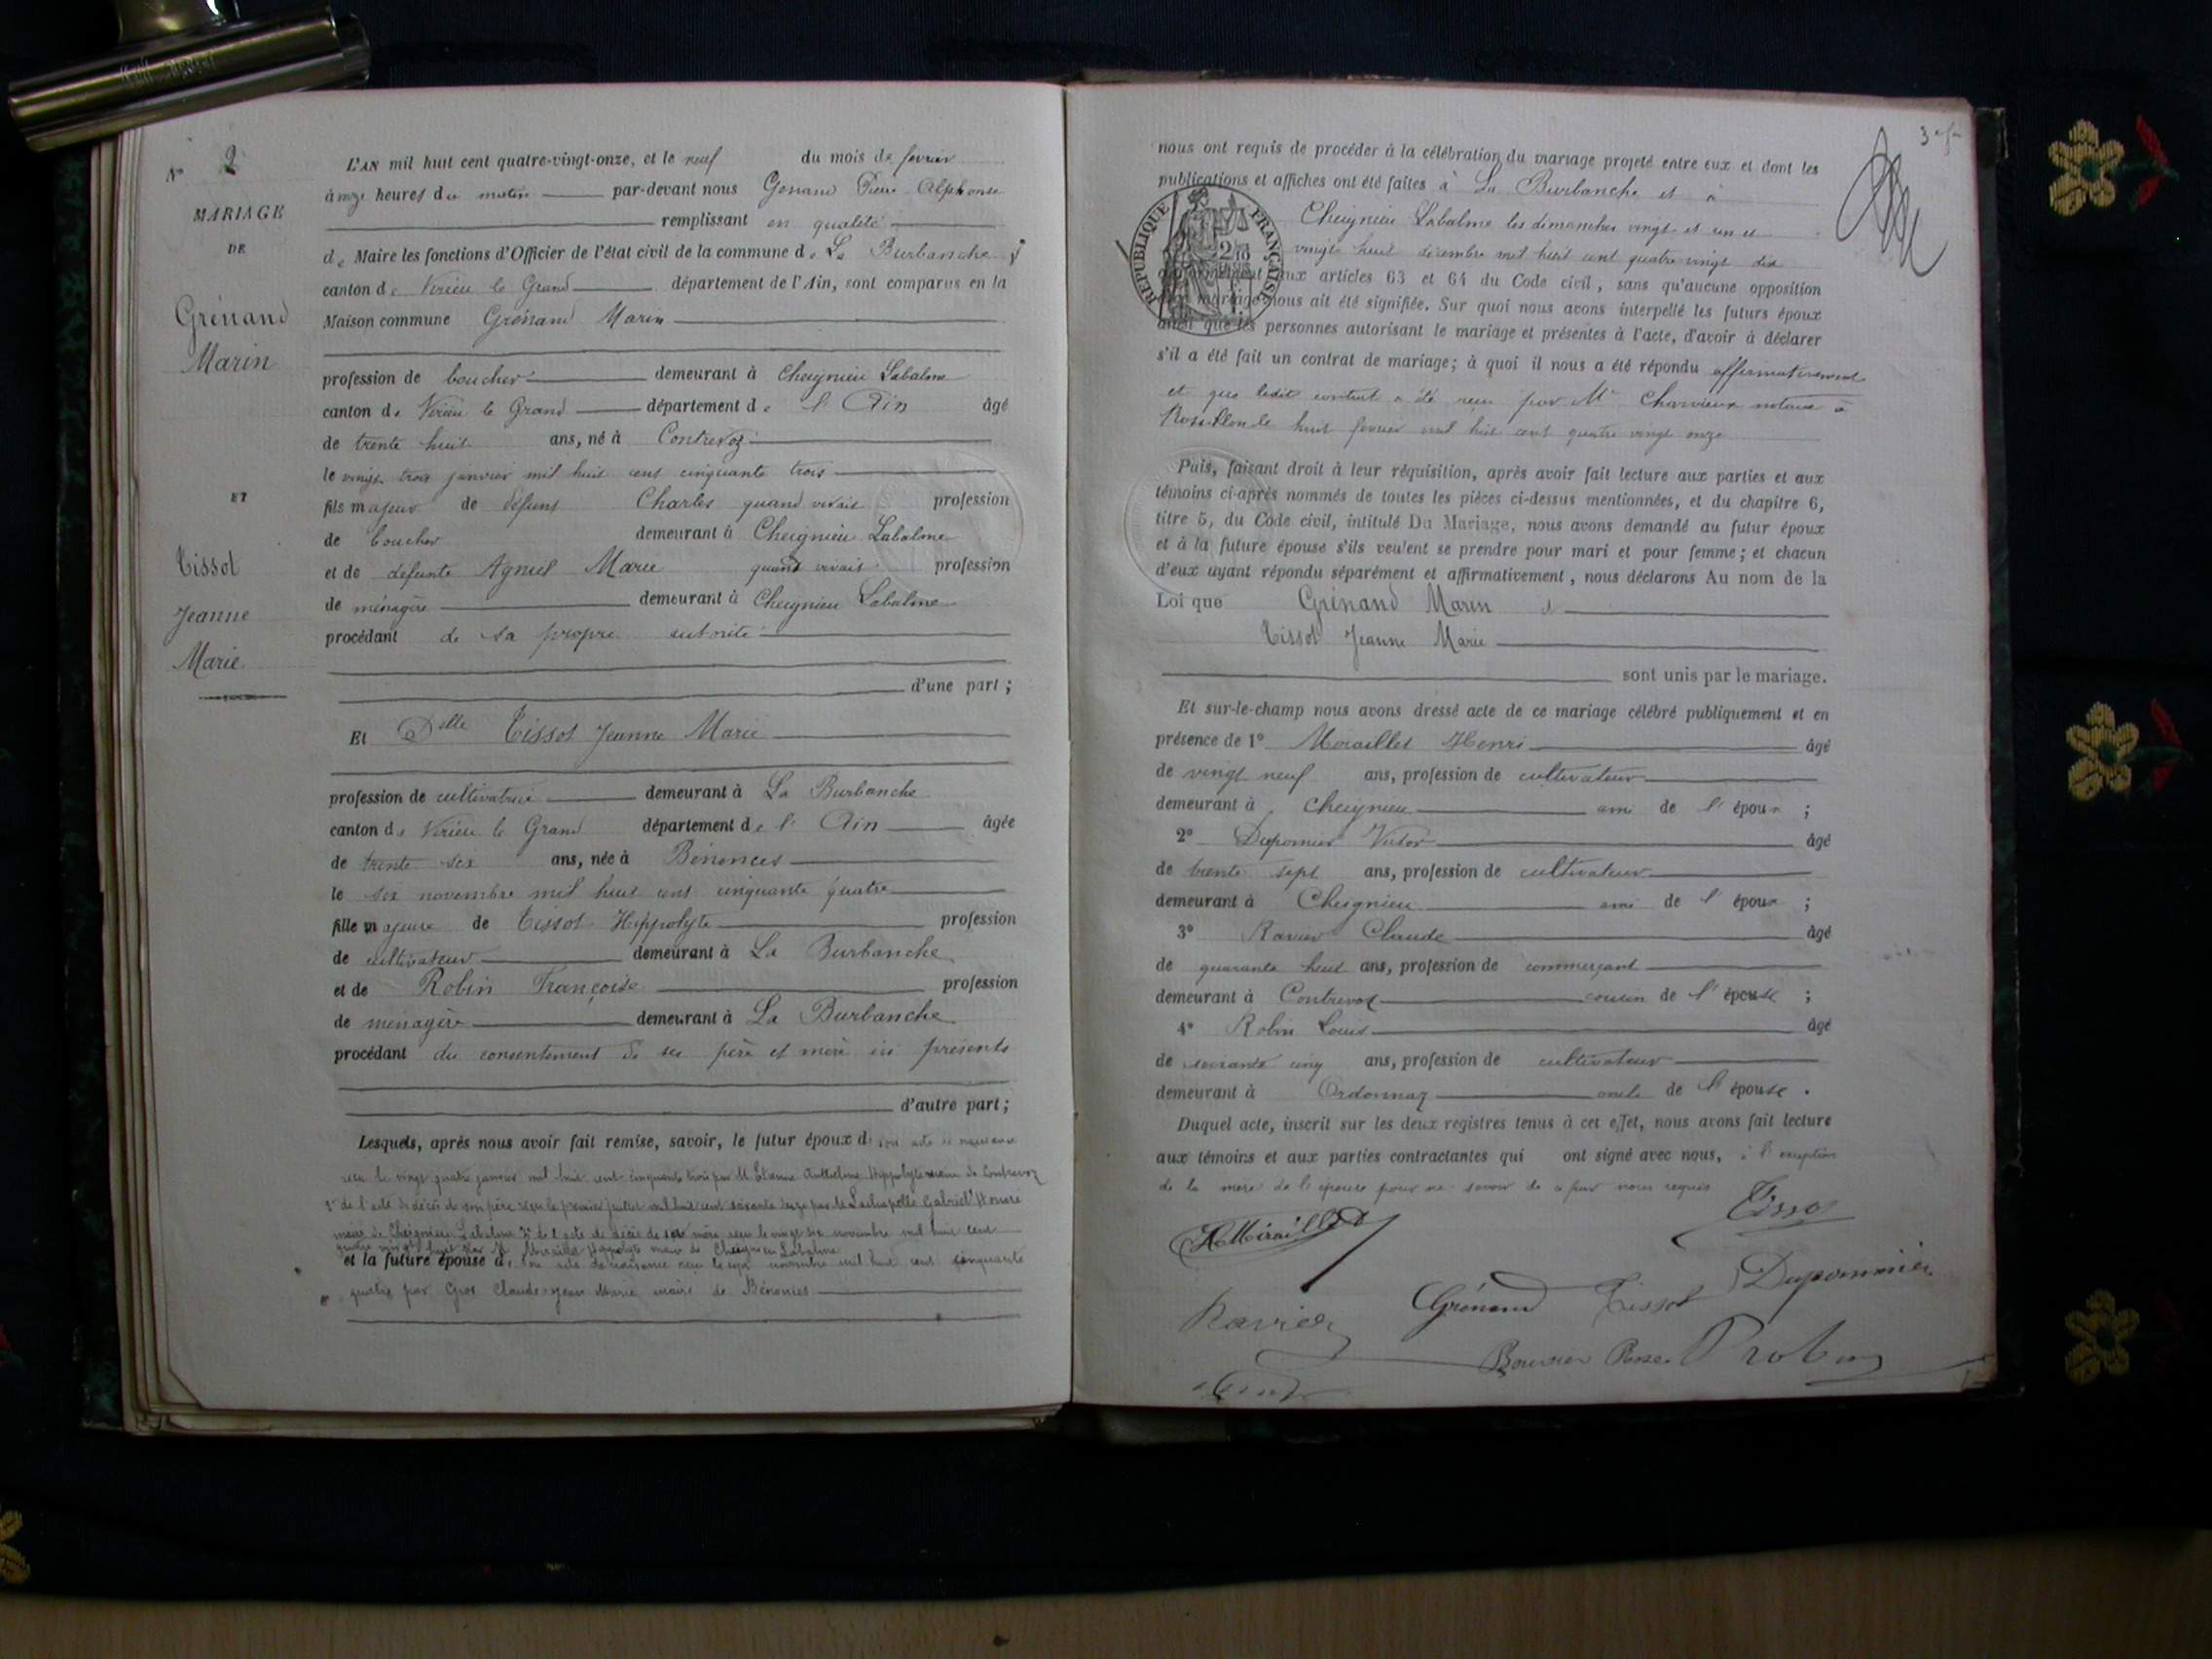 N° 2
MARIAGE
DE
Grénand
Marin
ET
Tissot
Jeanne
Marie
L'AN mil huit cent quatre-vingt-onze, et le neuf du mois de fevrier
à onze heures du matin par-devant nous Génand Pierre Alphonse
remplissant en qualité
de Maire les fonctions d'Officier de l'état civil de la commune de La Burbanche
canton de Virieu le Grand département de l'Ain, sont comparus en la
Maison commune Grénand Marin
profession de boucher demeurant à Cheignieu Labalme
canton de Virieu le Grand département de l'Ain âgé
de trente huit ans, né à Contrevoz
le vingt trois janvier mil huit cent cinquante trois
fils majeur de défunt Charles quand vivait profession
de boucher demeurant à Cheignieu Labalme
et de défunte Agniel Marie quand vivait profession
de ménagère demeurant à Cheignieu Labalme
procédant de sa propre autorité
d'une part ;
Et Delle Tissot Jeanne Marie
profession de cultivatrice demeurant à La Burbanche
canton de Virieu le Grand département de l'Ain âgée
de trente six ans, née à Bénonces
le six novembre mil huit cent cinquante quatre
fille majeure de Tissot Hippolyte profession
de cultivateur demeurant à La Burbanche
et de Robin Françoise profession
de ménagère demeurant à La Burbanche
procédant du consentement de ses père et mère ici présents
d'autre part ;
Lesquels, après nous avoir fait remise, savoir, le futur époux de son acte de naissance
reçu le vingt quatre janvier mil huit cent cinquante trois par M. Etienne Anthelme Hippolyte maire de Contrevoz
2° de l'acte de décès de son père reçu le premier juillet mil huit cent soixante onze par M. Lachapelle Gabriel Honoré
maire de Cheignieu Labalme 3° de l'acte de décès de sa mère reçu le vingt six novembre mil huit cent
quatre vingt huit par M. Miraillet Hippolyte maire de Cheignieu Labalme
et la future épouse de son acte de naissance reçu le sept novembre mil huit cent cinquante
quatre par Gros Claude Jean Marie maire de Bénonces
3e f
nous ont requis de procéder à la célébration du mariage projeté entre eux et dont les
publications et affiches ont été faites à La Burbanche et à
Cheignieu Labalme les dimanches vingt et un et
vingt huit décembre mil huit cent quatre vingt dix
RÉPUBLIQUE FRANÇAISE
conformément aux articles 63 et 64 du Code civil, sans qu'aucune opposition
mariage nous ait été signifiée. Sur quoi nous avons interpellé les futurs époux
ainsi que les personnes autorisant le mariage et présentes à l'acte, d'avoir à déclarer
s'il a été fait un contrat de mariage ; à quoi il nous a été répondu affirmativement
et que ledit contrat a été reçu par Me Charvieux notaire à
Rossillon le huit fevrier mil huit cent quatre vingt onze
Puis, faisant droit à leur réquisition, après avoir fait lecture aux parties et aux
témoins ci-après nommés de toutes les pièces ci-dessus mentionnées, et du chapitre 6,
titre 5, du Code civil, intitulé Du Mariage, nous avons demandé au futur époux
et à la future épouse s'ils veulent se prendre pour mari et pour femme ; et chacun
d'eux ayant répondu séparément et affirmativement, nous déclarons Au nom de la
Loi que Grénand Marin et
Tissot Jeanne Marie
sont unis par le mariage.
Et sur-le-champ nous avons dressé acte de ce mariage célébré publiquement et en
présence de 1° Miraillet Henri âgé
de vingt neuf ans, profession de cultivateur
demeurant à Cheignieu ami de l'époux ;
2° Dupomier Victor âgé
de trente sept ans, profession de cultivateur
demeurant à Cheignieu ami de l'époux ;
3° Ravier Claude âgé
de quarante huit ans, profession de commerçant
demeurant à Contrevoz cousin de l'épouse ;
4° Robin Louis âgé
de soixante cinq ans, profession de cultivateur
demeurant à Ordonnaz oncle de l'épouse .
Duquel acte, inscrit sur les deux registres tenus à cet effet, nous avons fait lecture
aux témoins et aux parties contractantes qui ont signé avec nous, à l'exception
de la mère de l'épouse pour ne savoir de ce par nous requis
H Miraillet
Tissot
Grénand Tissot Dupommier
Ravier
Robin